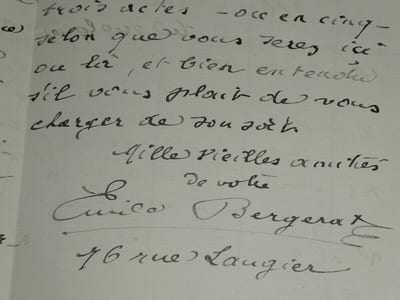 trois actes - ou en cinq -
selon que vous serez ici
ou là, et bien entendu
s'il vous plait de vous
charger de son sort
Mille vieilles amitiés
de votre
Emile Bergerat
16 rue Laugier